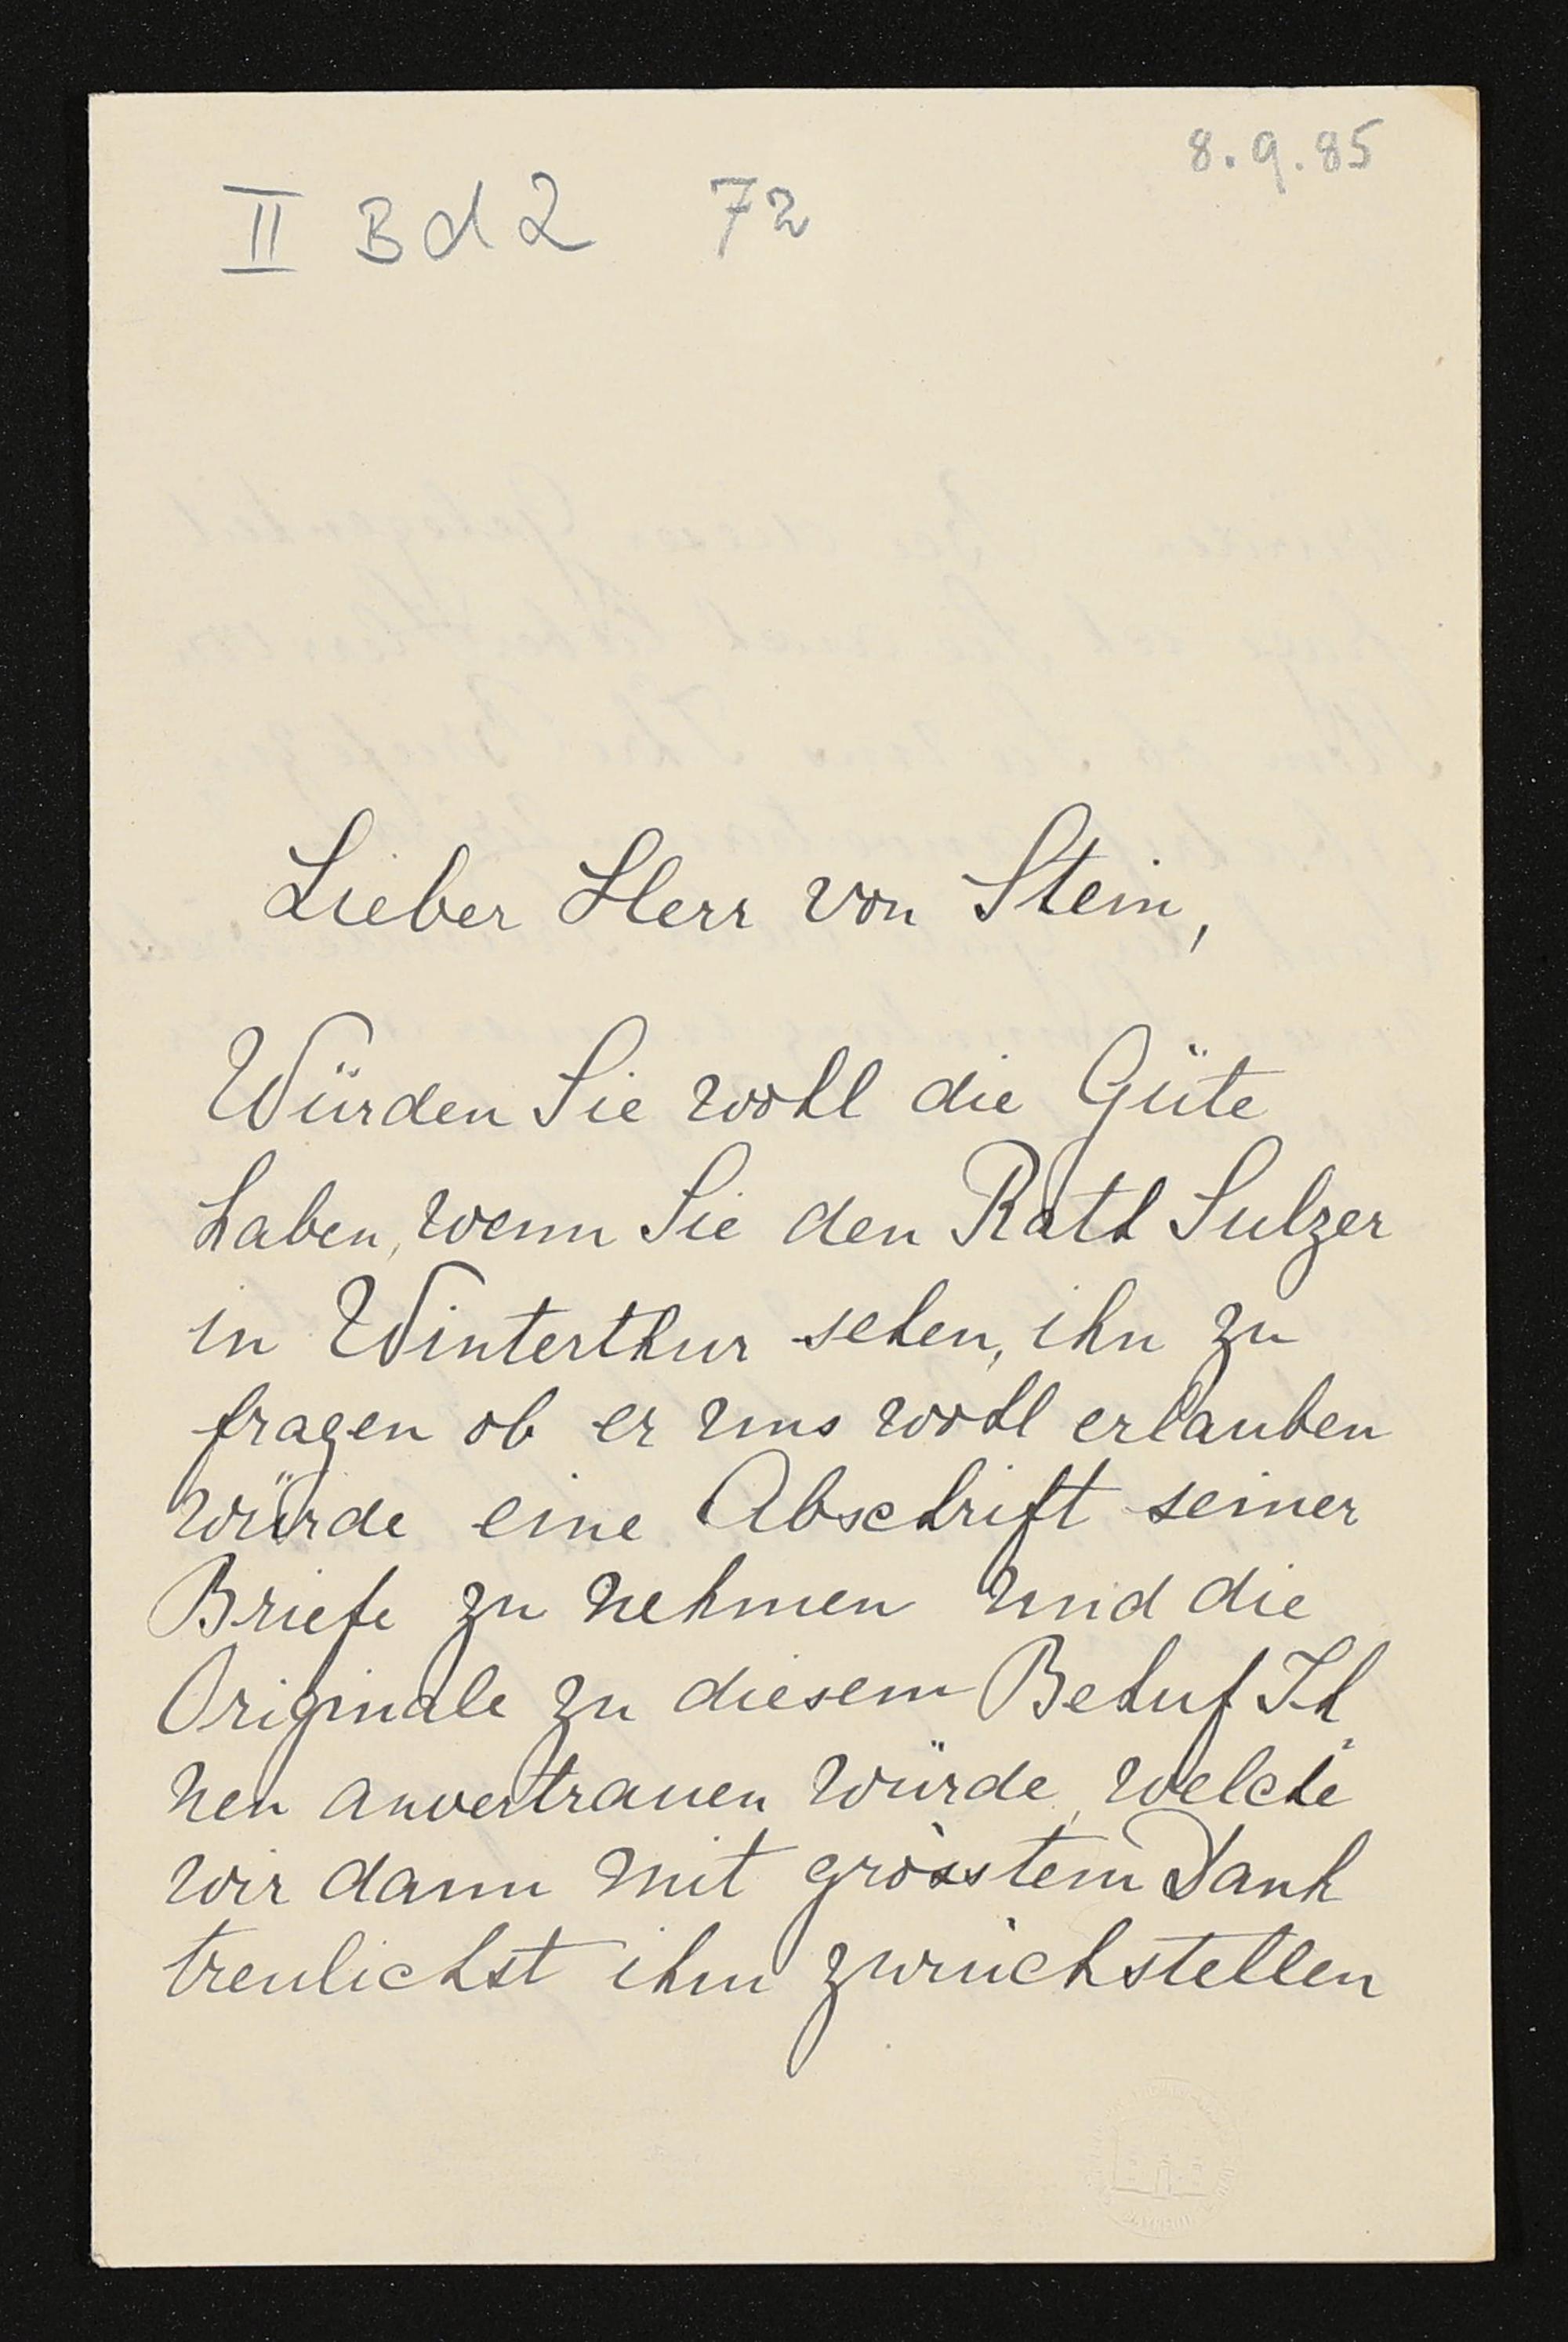 8.9.85
II Bd 2 72
Lieber Herr von Stein,
Würden Sie wohl die Güte
haben, wenn Sie den Rath Sulzer
in Winterthur sehen, ihn zu
fragen ob er uns wohl erlauben
würde eine Abschrift seiner
Briefe zu nehmen und die
Originale zu diesem Behuf Ih
nen anvertrauen würde, welche
wir dann mit grösstem Dank
treulichst ihm zurückstellen